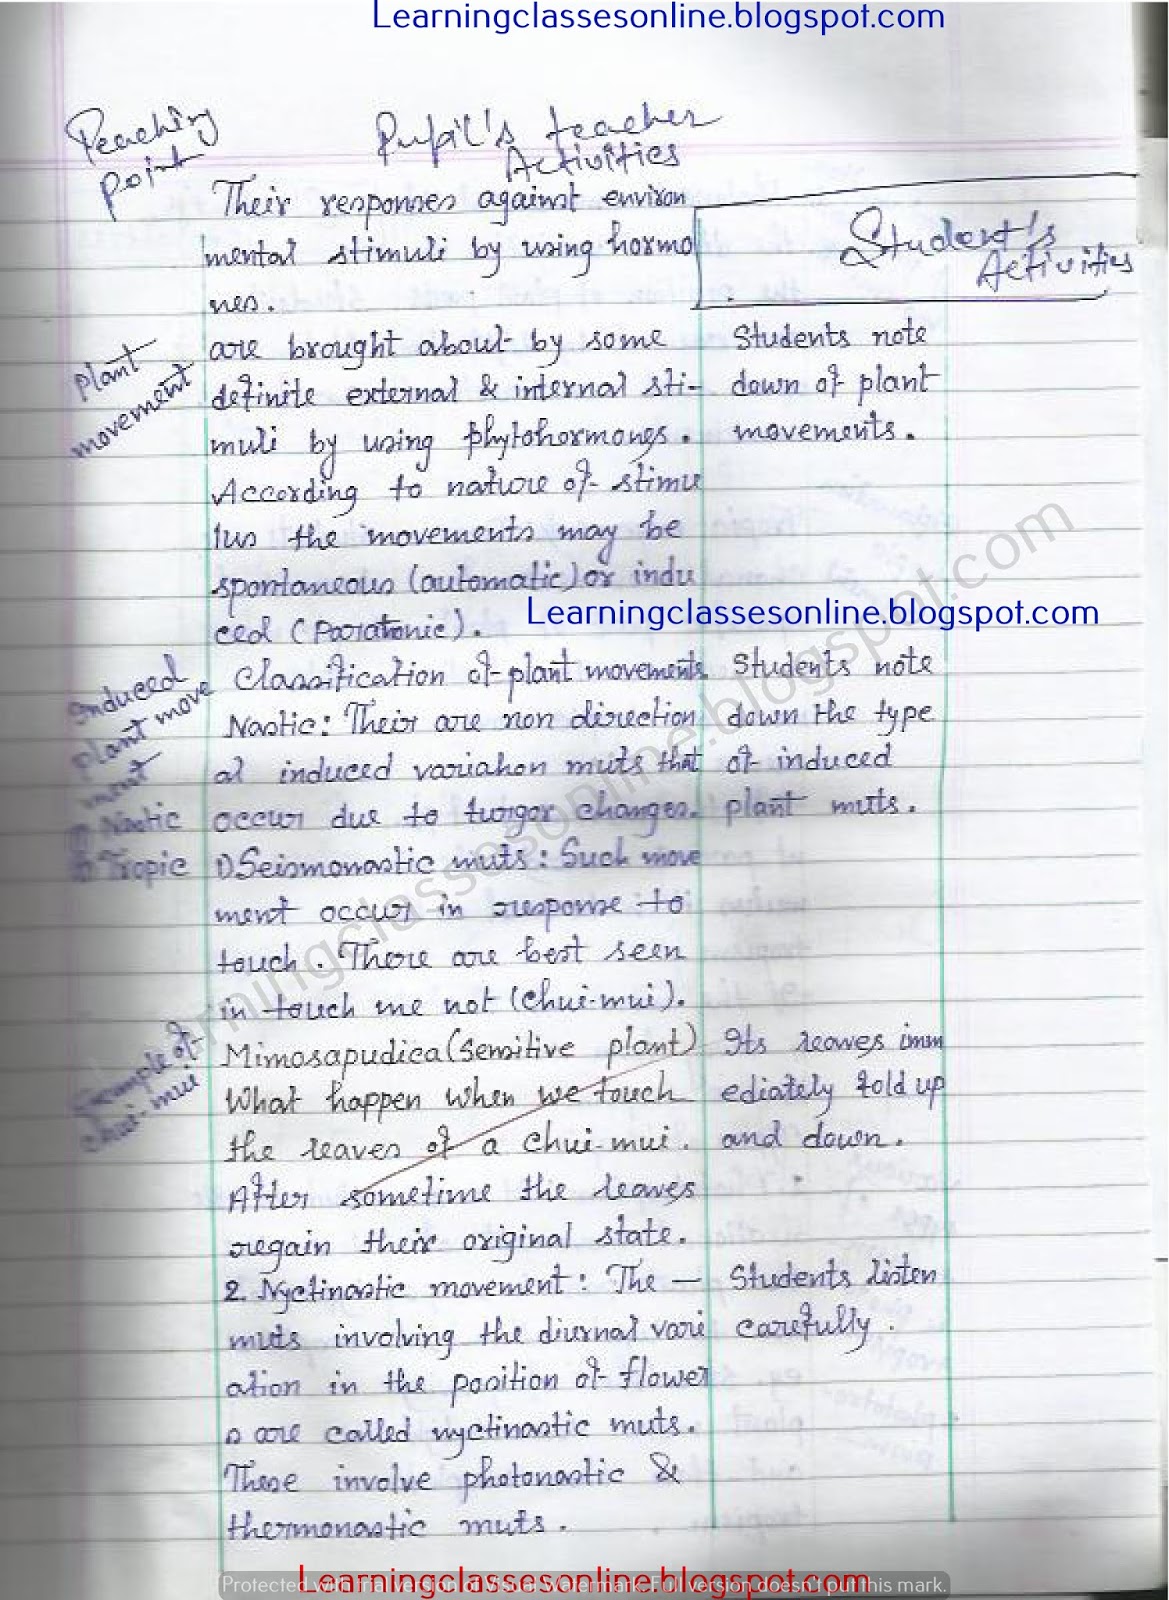 Learningclassesonline.blogspot.com
Teaching
point
Pupil's teacher
Activities
Student's
Activities
Their responses against environ
mental stimuli by using hormo
nes.
plant
movement
are brought about by some
definite external & internal sti-
muli by using phytohormones.
According to nature of stimu
lus the movements may be
spontaneous (automatic) or indu
ced (Paratonic).
Students note
down of plant
movements.
Learningclassesonline.blogspot.com
Induced
plant move
ment
① Nastic
② Tropic
Classification of plant movements
Nastic: Their are non direction
al induced variahon muts that
occur due to turgor changes.
Students note
down the type
of induced
plant muts.
1) Seismonastic muts: Such move
ment occur in response to
touch. There are best seen
in touch me not (chui-mui).
Example of
chui-mui
Mimosapudica (Sensitive plant)
What happen when we touch
the leaves of a chui-mui.
After sometime the leaves
regain their original state.
Its leaves imm
ediately fold up
and down.
2. Nyctinastic movement: The —
muts involving the diurnal vari
ation in the position of flower
s are called nyctinastic muts.
These involve photonastic &
thermonastic muts.
Students listen
carefully.
Learningclassesonline.blogspot.com
Protected with trial version of Visual Watermark. Full version doesn't put this mark.